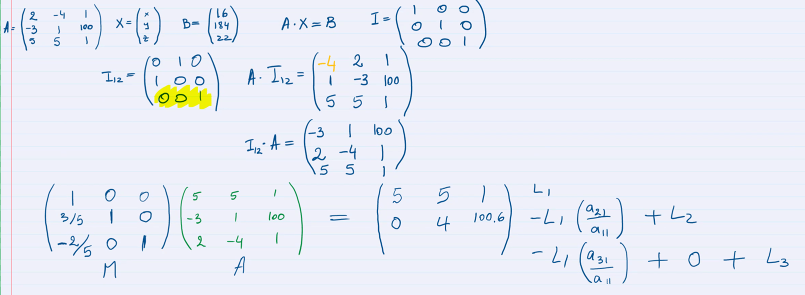 A = ( 2 -4 1 ; -3 1 100 ; 5 5 1 ) X = ( x ; y ; z ) B = ( 16 ; 184 ; 22 ) A · X = B I = ( 1 0 0 ; 0 1 0 ; 0 0 1 )
I₁₂ = ( 0 1 0 ; 1 0 0 ; 0 0 1 ) A · I₁₂ = ( -4 2 1 ; 1 -3 100 ; 5 5 1 )
I₁₂ · A = ( -3 1 100 ; 2 -4 1 ; 5 5 1 )
( 1 0 0 ; 3/5 1 0 ; -2/5 0 1 ) ( 5 5 1 ; -3 1 100 ; 2 -4 1 ) = ( 5 5 1 ; 0 4 100,6 )
M A
L₁
-L₁ (a₂₁/a₁₁) + L₂
-L₁ (a₃₁/a₁₁) + 0 + L₃